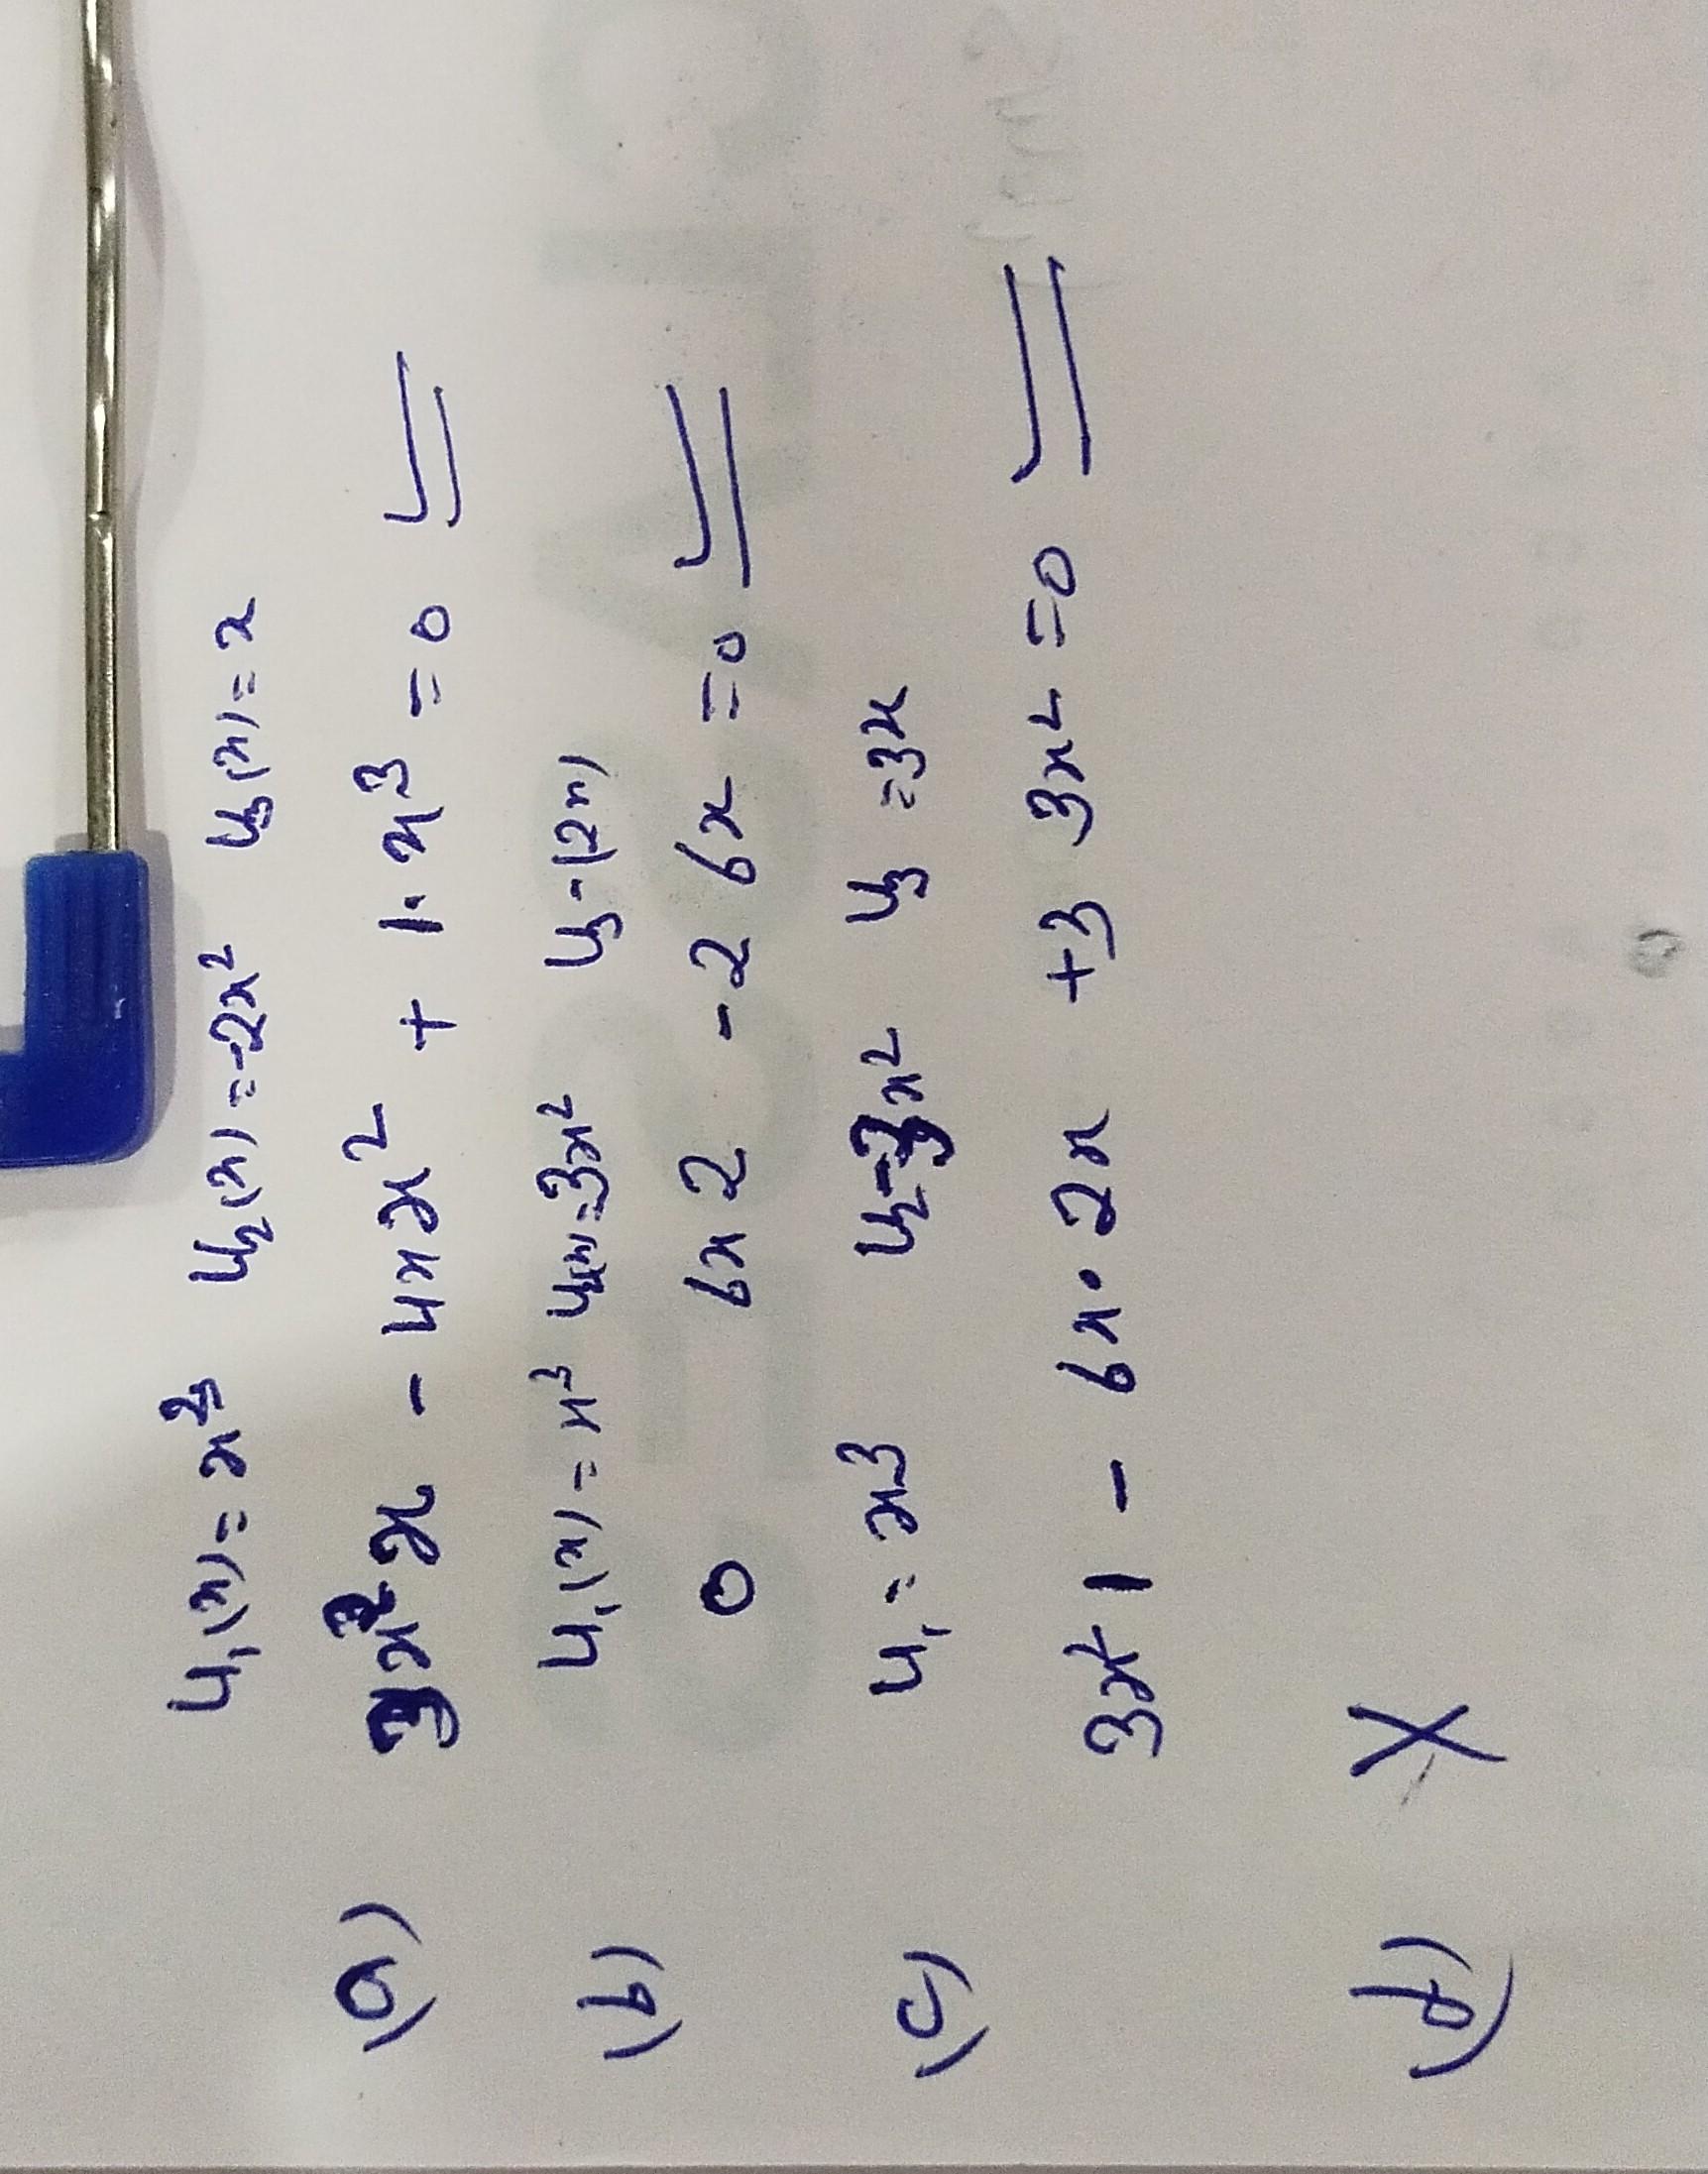 y₁(x) = x³ y₂(x) = -2x² y₃(x) = x
(a) 3x²·x - 4x x² + 1·x³ = 0
y₁(x) = x³ y₂(x) = 3x² y₃ - (2x)
(b) 0 6x 2 - 2 6x = 0
y₁ = x3 y₂ - 3x² y₃ = 3x
(c) 3x² 1 - 6x·2x + 3 3x² = 0
(d) X